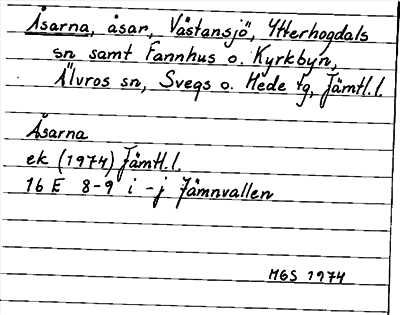 Åsarna, åsar, Västansjö, Ytterhogdals
sn samt Fannhus o. Kyrkbyn,
Älvros sn, Svegs o. Hede tg, Jämtl.l.
Åsarna
ek (1974) Jämtl.l.
16 E 8-9 i -j Jämnvallen
MGS 1974